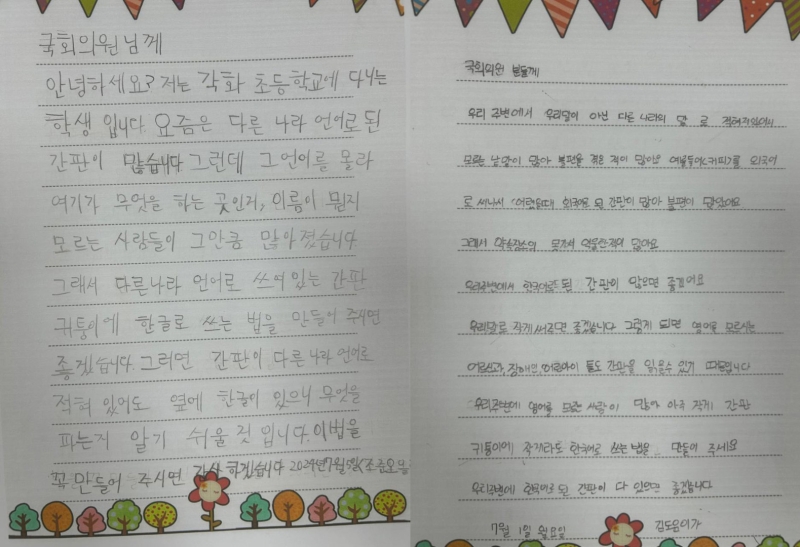 국회의원님께
안녕하세요? 저는 각화 초등학교에 다니는
학생 입니다. 요즘은 다른 나라 언어로 된
간판이 많습니다 그런데 그 언어를 몰라
여기가 무엇을 하는 곳인지, 이름이 뭔지
모르는 사람들이 그만큼 많아졌습니다.
그래서 다른나라 언어로 쓰여있는 간판
귀퉁이에 한글로 쓰는 법을 만들어 주시면
좋겠습니다. 그러면 간판이 다른 나라 언어로
적혀 있어도 옆에 한글이 있으니 무엇을
파는지 알기 쉬울 것 입니다. 이법을
꼭 만들어 주시면 감사 하겠습니다 2024년7월1일
국회의원 분들께
우리 주변에서 우리말이 아닌 다른 나라의 말 로
모르는 낱말이 많아 불편을 겪은 적이 많아요 예를들어<커피>를 외국어
로 외국어로 된 간판이 많아 불편이 많았어요
그래서 약속장소의 못가서 적이 많아요
우리주변에서 한국어로 된 간판이 많으면 좋겠어요
우리말로 적게 써주면 좋겠습니다 그렇게 되면 영어를 모르시는
어르신과, 장애인, 어린아이 들도 간판을 읽을수 있기 때문입니다
우리주변에 영어를 모르는 사람이 많아 아주 작게 간판
귀퉁이에 작게라도 한국어로 쓰는 법을 만들어 주세요
우리주변에 한국어로 된 간판이 다 있으면 좋겠습니다
7월 1일 월요일 김도윤이가